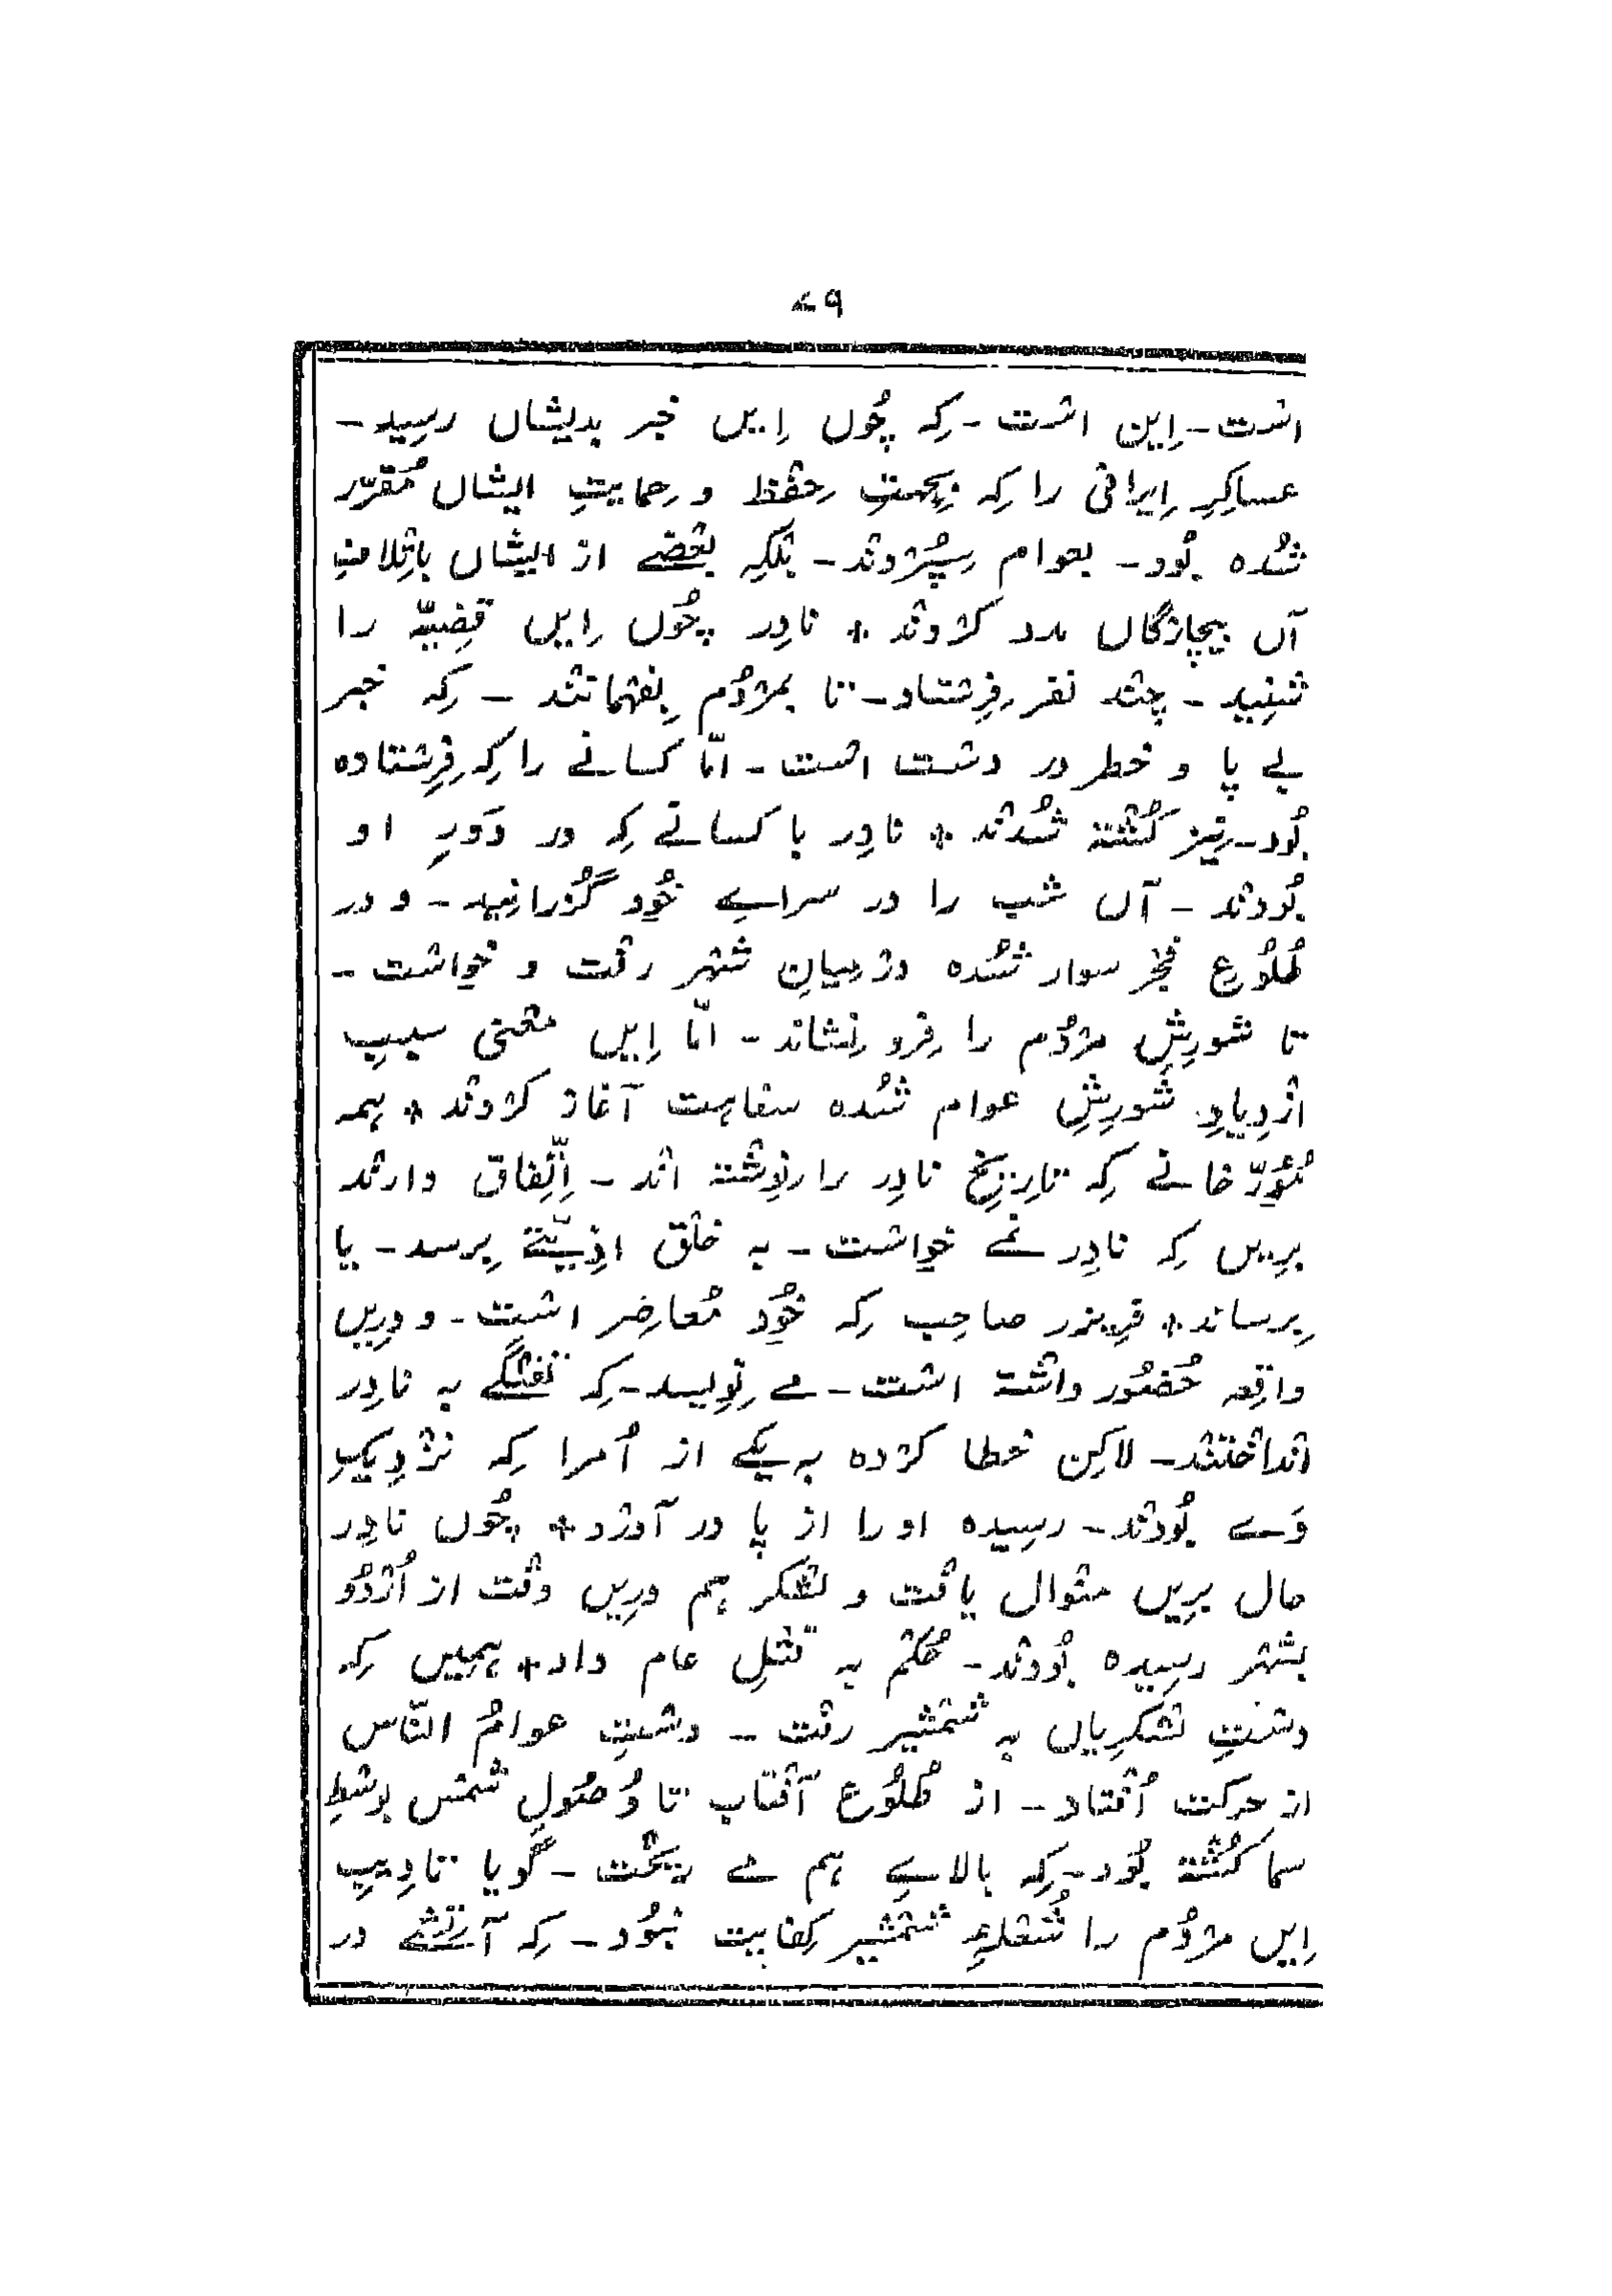 ۷۹
اسْت۔ اِین اسْت۔ کِہ چُوں اِیں خبر بدیشاں رسِید۔
عساکِرِ اِیرانی را کِہ بِجِہتِ حِفْظ و حِمایتِ ایشاں مُقرّر
شُدہ بُود۔ بعوام سِپُرْدنْد۔ بلْکِہ بعْضے از ایشاں باتْلافِ
آں بیچارْگاں مدد کرْدنْد * نادِر چُوں اِیں قضِیّہ را
شنِید۔ چنْد نفر فِرِسْتاد۔ تا بمرْدُم بِفہْمانْنْد۔ کِہ خبر
بے پا و خطر در دسْت اسْت۔ امّا کسانے را کِہ فِرِسْتادہ
بُود۔ نِیز کُشْتہ شُدنْد * نادِر با کسانے کِہ در دَورِ او
بُودنْد۔ آں شب را در سراے خُود گُزرانِید۔ و در
طُلُوعِ فجْر سوار شُدہ درْ میانِ شہْر رفْت و خواسْت۔
تا شورِشِ مرْدُم را فِرو نِشانْد۔ امّا اِیں معْنی سببِ
ازْدِیادِ شورِشِ عوام شُدہ سفاہت آغاز کرْدنْد * ہمہ
مُوَرِّخانے کِہ تارِیخِ نادِر را نِوِشْتہ انْد۔ اِتِّفاق دارنْد
برِیں کِہ نادِر نمے خواسْت۔ بہ خلْق اذِیّتے بِرسد۔ یا
بِرسانْد * فریزر صاحِب کِہ خُود مُعاصِر اسْت۔ و درِیں
واقِعہ حُضُور داشْتہ اسْت۔ مے نِوِیسد۔ کِہ تُفنْگے بہ نادِر
انْداخْتنْد۔ لاکِن خطا کرْدہ بہ یکے از اُمرا کِہ نزْدِیکِ
وَے بُودنْد۔ رسِیدہ او را از پا در آورْد * چُوں نادِر
حال برِیں منْوال یافْت و لشْکر ہم درِیں وقْت از اُرْدُو
بشہْر رسِیدہ بُودنْد۔ حُکْم بہ قتْلِ عام داد * ہمِیں کِہ
دسْتِ لشْکرِیاں بہ شمْشیر رفْت۔ دسْتِ عوامُ النّاس
از حرکت اُفْتاد۔ از طُلُوعِ آفْتاب تا وُصُولِ شمْس بوسْطِ
سما کُشْتہ بُود۔ کِہ بالاے ہم مے رِیخْت۔ گویا تادِیبِ
اِیں مرْدُم را شُعْلۂِ شمْشیر کِفایت نبُود۔ کِہ آتِشے در